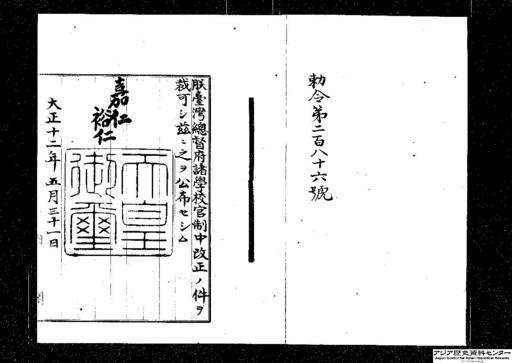 勅令第二百八十六號
朕臺灣總督府諸學校官制中改正ノ件ヲ
裁可シ茲ニ之ヲ公布セシム
嘉仁
裕仁
天皇
御璽
大正十二年五月三十一日
アジア歴史資料センター
Japan Center for Asian Historical Records